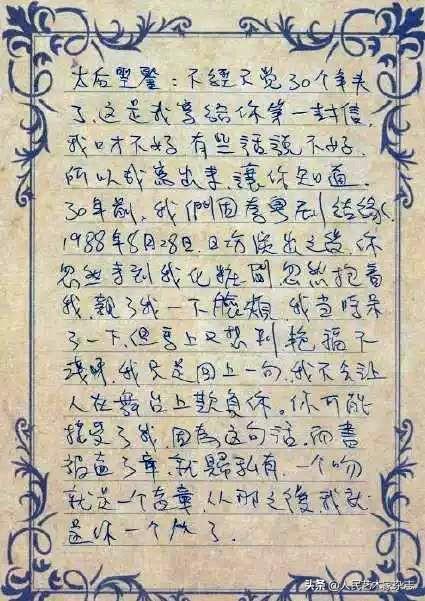 太后聖鑒：不經不覺30个年头
了，这是我寫給你第一封信，
我口才不好 有些話說不好，
所以我寫出來讓你知道.
30年前，我們因 結緣，
1988年8月28日，日场演出之後，你
忽然 到我化妝間忽然抱着
我，親了我一下臉頰 我当時呆
了一下，但馬上又想到，艳福不
浅啊，我只是回上一句，我不会让
人在舞台上欺負你。你可能
接受了我，因為这句话，而書
蓋了章，就歸私有，一个吻
就是一个 章，从那之後，我就
是你一个 了.
头条 @人民艺术家杂志